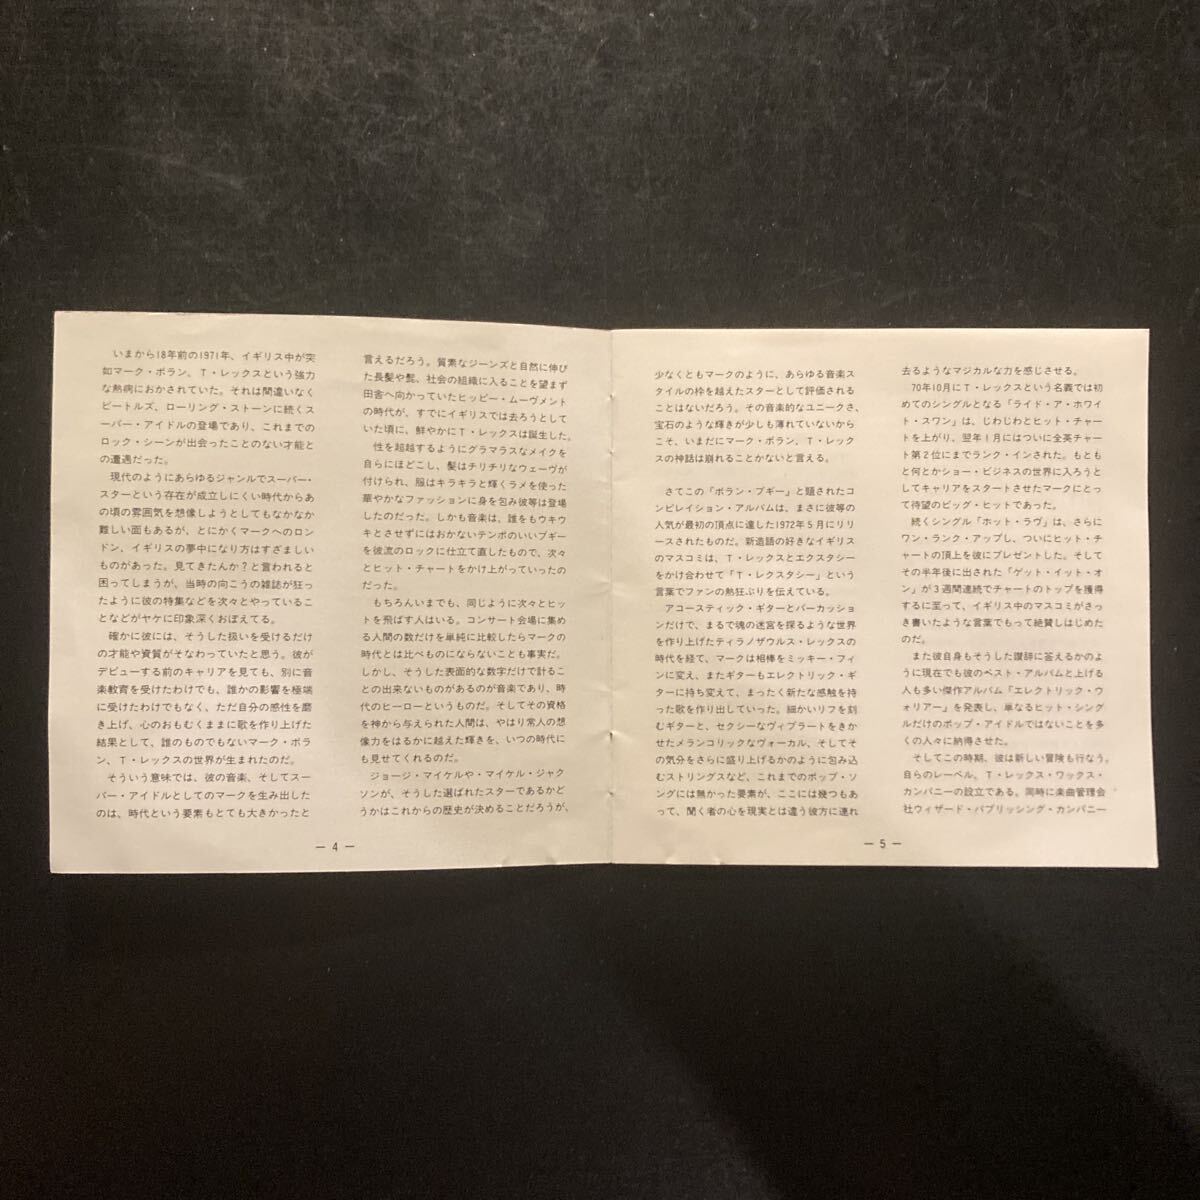 いまから18年前の1971年、イギリス中が突
如マーク・ボラン、T・レックスという強力
な熱病におかされていた。それは間違いなく
ビートルズ、ローリング・ストーンに続くス
ーパー・アイドルの登場であり、これまでの
ロック・シーンが出会ったことのない才能と
の遭遇だった。
現代のようにあらゆるジャンルでスーパー・
スターという存在が成立しにくい時代からあ
の頃の雰囲気を想像しようとしてもなかなか
難しい面もあるが、とにかくマークへのロン
ドン、イギリスの夢中になり方はすざましい
ものがあった。見てきたんか?と言われると
困ってしまうが、当時の向こうの雑誌が狂っ
たように彼の特集などを次々とやっているこ
となどがヤケに印象深くおぼえてる。
確かに彼には、そうした扱いを受けるだけ
の才能や資質がそなわっていたと思う。彼が
デビューする前のキャリアを見ても、別に音
楽教育を受けたわけでも、誰かの影響を極端
に受けたわけでもなく、ただ自分の感性を磨
き上げ、心のおもむくままに歌を作り上げた
結果として、誰のものでもないマーク・ボラ
ン、T・レックスの世界が生まれたのだ。
そういう意味では、彼の音楽、そしてスー
パー・アイドルとしてのマークを生み出した
のは、時代という要素もとても大きかったと
言えるだろう。質素なジーンズと自然に伸び
た長髪や髭、社会の組織に入ることを望まず
田舎へ向かっていたヒッピー・ムーヴメント
の時代が、すでにイギリスでは去ろうとして
いた頃に、鮮やかにT・レックスは誕生した。
性を超越するようにグラマラスなメイクを
自らにほどこし、髪はチリチリなウェーヴが
付けられ、服はキラキラと輝くラメを使った
華やかなファッションに身を包み彼等は登場
したのだった。しかも音楽は、誰をもウキウ
キとさせずにはおかないテンポのいいブギー
を彼流のロックに仕立て直したもので、次々
とヒット・チャートをかけ上がっていったの
だった。
もちろんいまでも、同じように次々とヒッ
トを飛ばす人はいる。コンサート会場に集め
る人間の数だけを単純に比較したらマークの
時代とは比べものにならないことも事実だ。
しかし、そうした表面的な数字だけで計るこ
との出来ないものがあるのが音楽であり、時
代のヒーローというものだ。そしてその資格
を神から与えられた人間は、やはり常人の想
像力をはるかに越えた輝きを、いつの時代に
も見せてくれるのだ。
ジョージ・マイケルや・マイケル・ジャク
ソンが、そうした選ばれたスターであるかど
うかはこれからの歴史が決めることだろうが、
— 4 —
少なくともマークのように、あらゆる音楽ス
タイルの枠を越えたスターとして評価される
ことはないだろう。その音楽的なユニークさ、
宝石のような輝きが少しも薄れていないから
こそ、いまだにマーク・ボラン、T・レック
スの神話は崩れることかないと言える。
さてこの「ボラン・ブギー」と題されたコ
ンピレイション・アルバムは、まさに彼等の
人気が最初の頂点に達した1972年5月にリリ
ースされたものだ。新造語の好きなイギリス
のマスコミは、T・レックスとエクスタシー
をかけ合わせて「T・レクスタシー」という
言葉でファンの熱狂ぶりを伝えている。
アコースティック・ギターとパーカッショ
ンだけで、まるで魂の迷宮を探るような世界
を作り上げたティラノザウルス・レックスの
時代を経て、マークは相棒をミッキー・フィ
ンに変え、またギターもエレクトリック・ギ
ターに持ち変えて、まったく新たな感触を持
った歌を作り出していった。細かいリフを刻
むギターと、セクシーなヴィブラートをきか
せたメランコリックなヴォーカル、そしてそ
の気分をさらに盛り上げるかのように包み込
むストリングスなど、これまでのポップ・ソ
ングには無かった要素が、ここには幾つもあ
って、聞く者の心を現実とは違う彼方に連れ
去るようなマジカルな力を感じさせる。
70年10月にT・レックスという名義では初
めてのシングルとなる「ライド・ア・ホワイ
ト・スワン」は、じわじわとヒット・チャー
トを上がり、翌年1月にはついに全英チャー
ト第2位にまでランク・インされた。もとも
と何とかショー・ビジネスの世界に入ろうと
してキャリアをスタートさせたマークにとっ
て待望のビッグ・ヒットであった。
続くシングル「ホット・ラヴ」は、さらに
ワン・ランク・アップし、ついにヒット・チ
ャートの頂上を彼にプレゼントした。そして
その半年後に出された「ゲット・イット・オ
ン」が3週間連続でチャートのトップを獲得
するに至って、イギリス中のマスコミがさっ
き書いたような言葉でもって絶賛しはじめた
のだ。
また彼自身もそうした讃辞に答えるかのよ
うに現在でも彼のベスト・アルバムと上げる
人も多い傑作アルバム「エレクトリック・ウ
ォリアー」を発表し、単なるヒット・シング
ルだけのポップ・アイドルではないことを多
くの人々に納得させた。
そしてこの時期、彼は新しい冒険も行なう。
自らのレーベル、T・レックス・ワックス・
カンパニーの設立である。同時に楽曲管理会
社ウィザード・パブリッシング・カンパニー
— 5 —